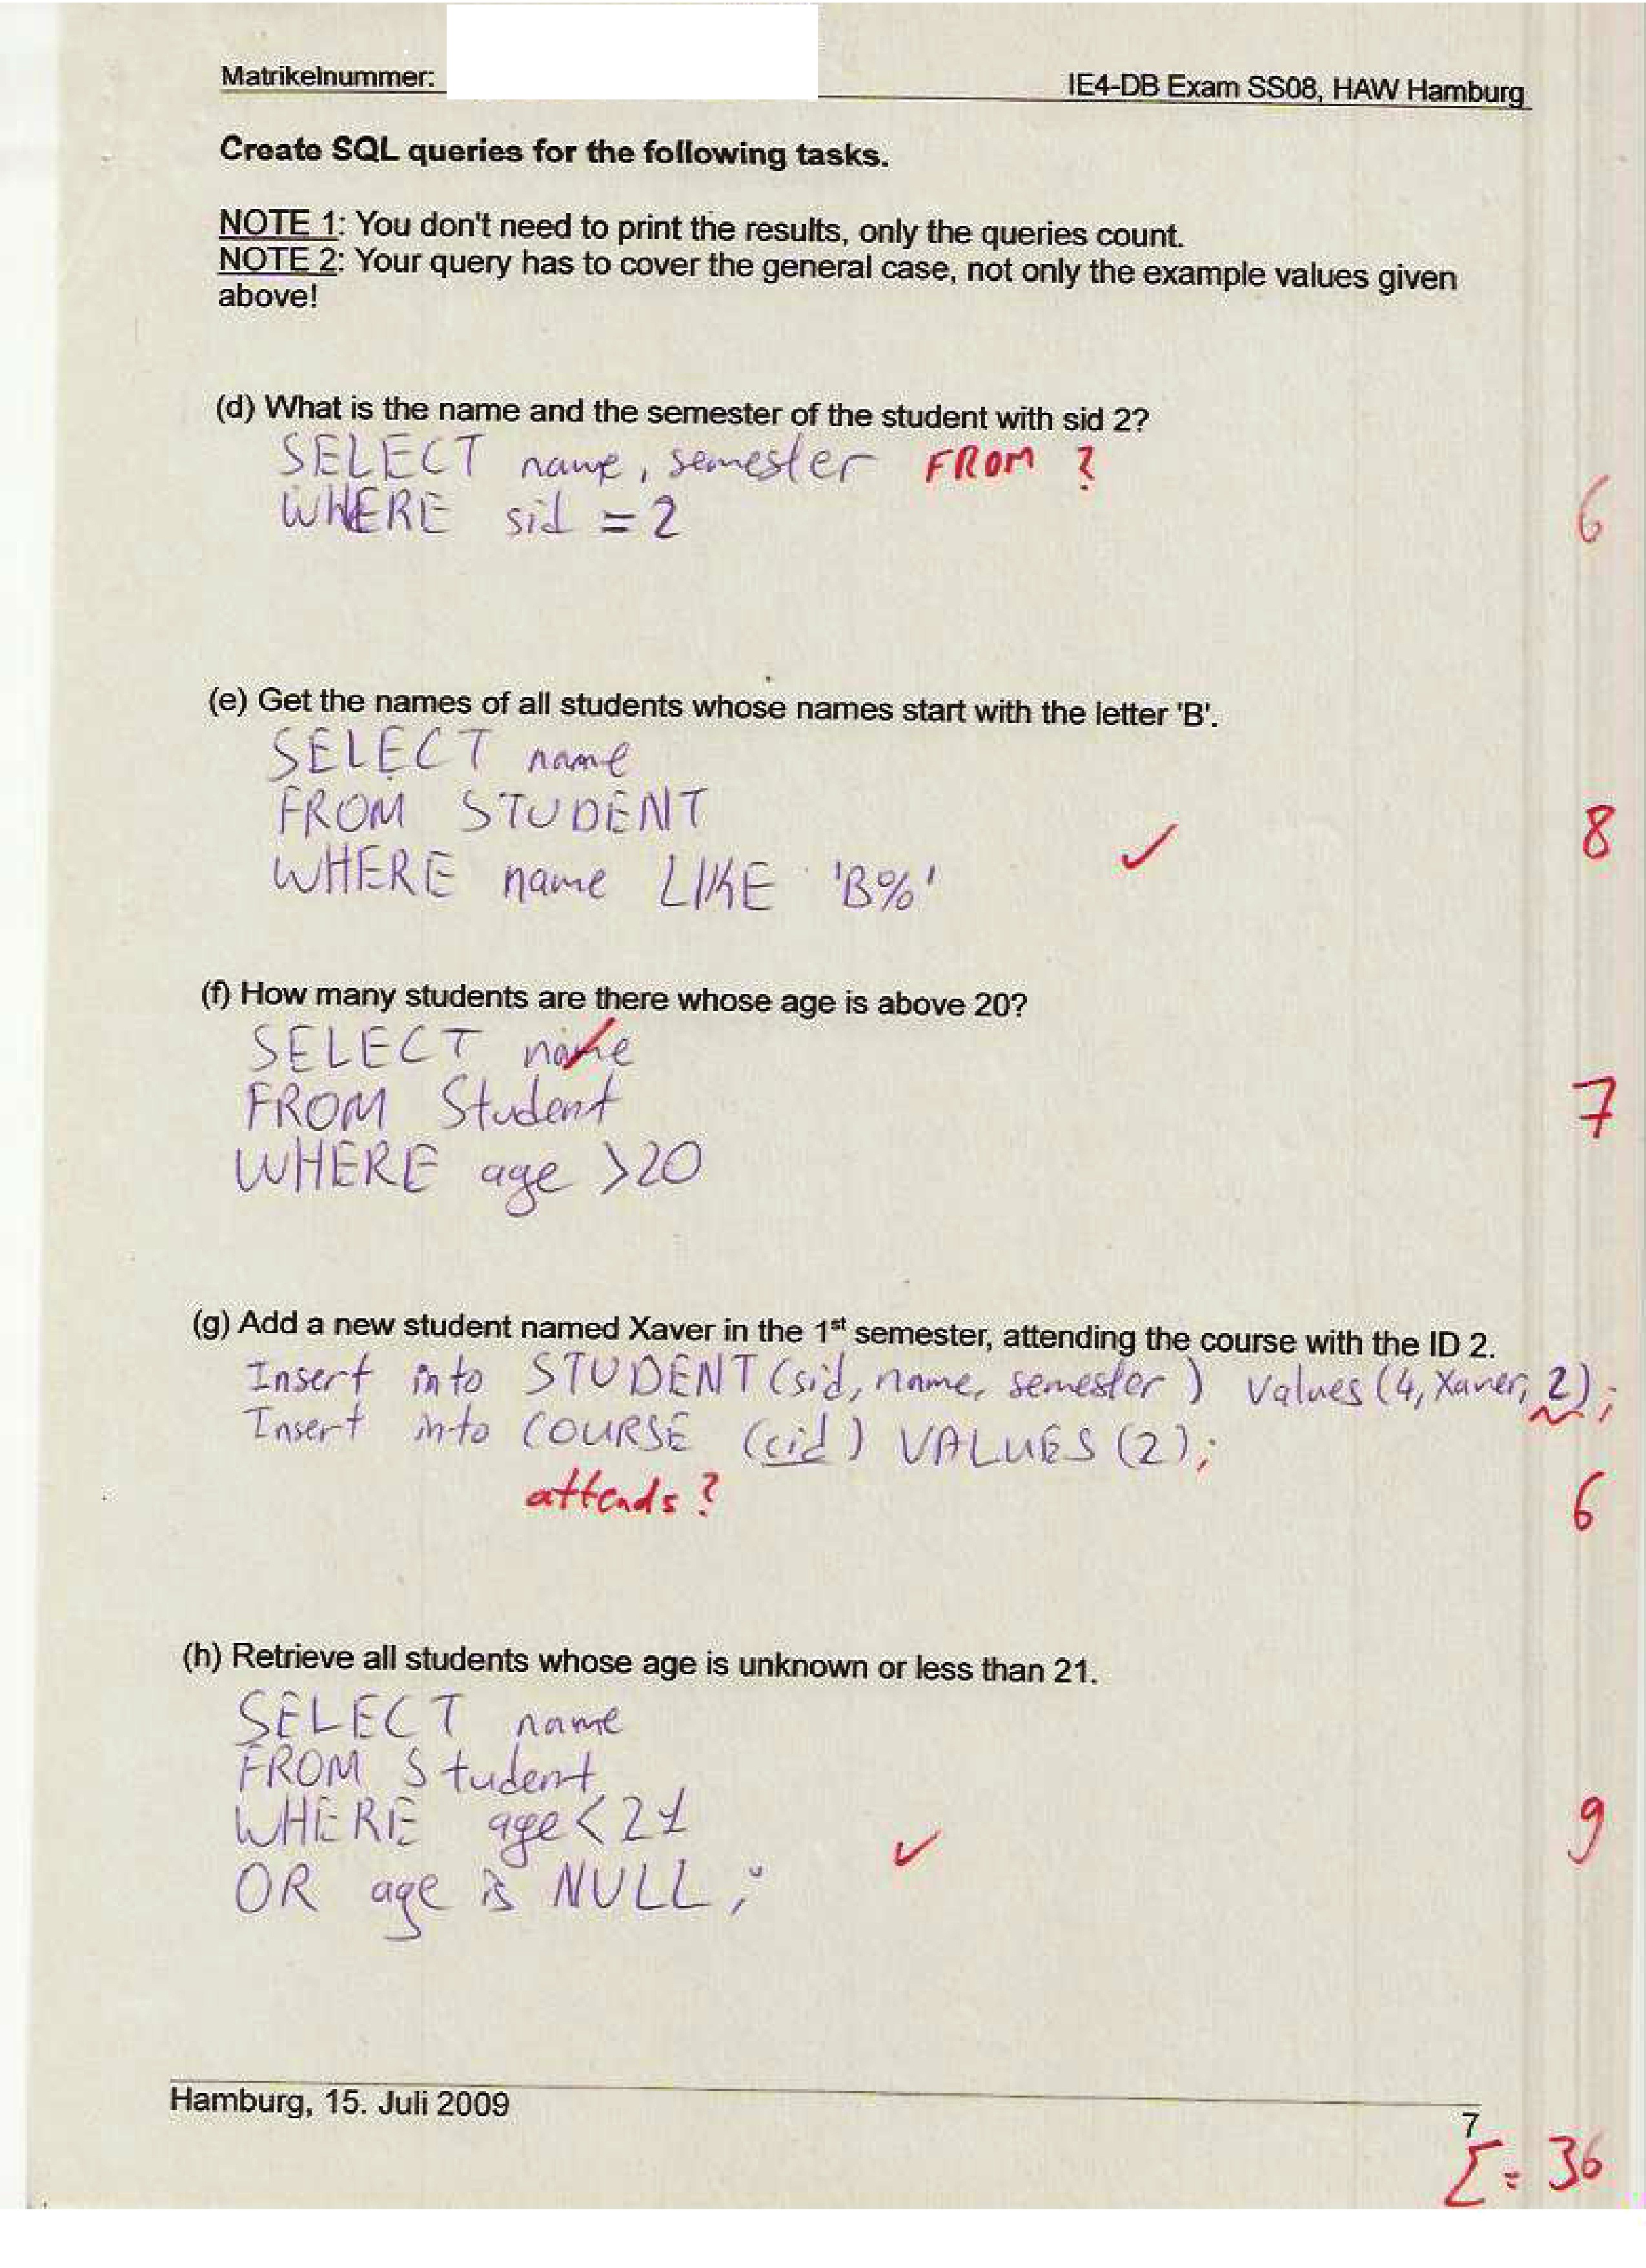 Matrikelnummer:
IE4-DB Exam SS08, HAW Hamburg
Create SQL queries for the following tasks.
NOTE 1: You don't need to print the results, only the queries count.
NOTE 2: Your query has to cover the general case, not only the example values given
above!
(d) What is the name and the semester of the student with sid 2?
SELECT name, semester FROM ?
WHERE sid = 2
6
(e) Get the names of all students whose names start with the letter 'B'.
SELECT name
FROM STUDENT
WHERE name LIKE 'B%' ✓
8
(f) How many students are there whose age is above 20?
SELECT name
FROM Student
WHERE age >20
7
(g) Add a new student named Xaver in the 1st semester, attending the course with the ID 2.
Insert into STUDENT (sid, name, semester) values (4, Xaver, 2);
Insert into COURSE (cid) VALUES (2);
attends?
6
(h) Retrieve all students whose age is unknown or less than 21.
SELECT name
FROM Student
WHERE age < 21
OR age is NULL; ✓
9
Hamburg, 15. Juli 2009
7
Σ = 36